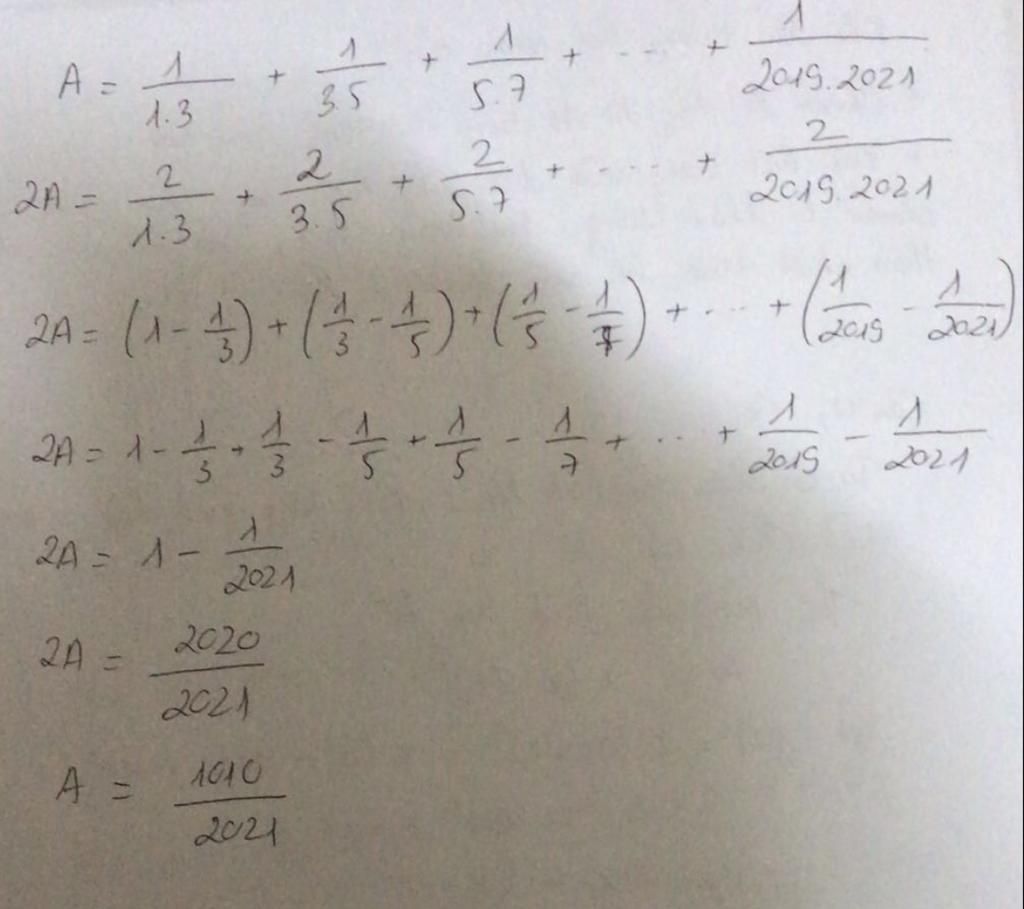 A = 1/1.3 + 1/3.5 + 1/5.7 + ... + 1/2019.2021
2A = 2/1.3 + 2/3.5 + 2/5.7 + ... + 2/2019.2021
2A = (1 - 1/3) + (1/3 - 1/5) + (1/5 - 1/7) + ... + (1/2019 - 1/2021)
2A = 1 - 1/3 + 1/3 - 1/5 + 1/5 - 1/7 + ... + 1/2019 - 1/2021
2A = 1 - 1/2021
2A = 2020/2021
A = 1010/2021